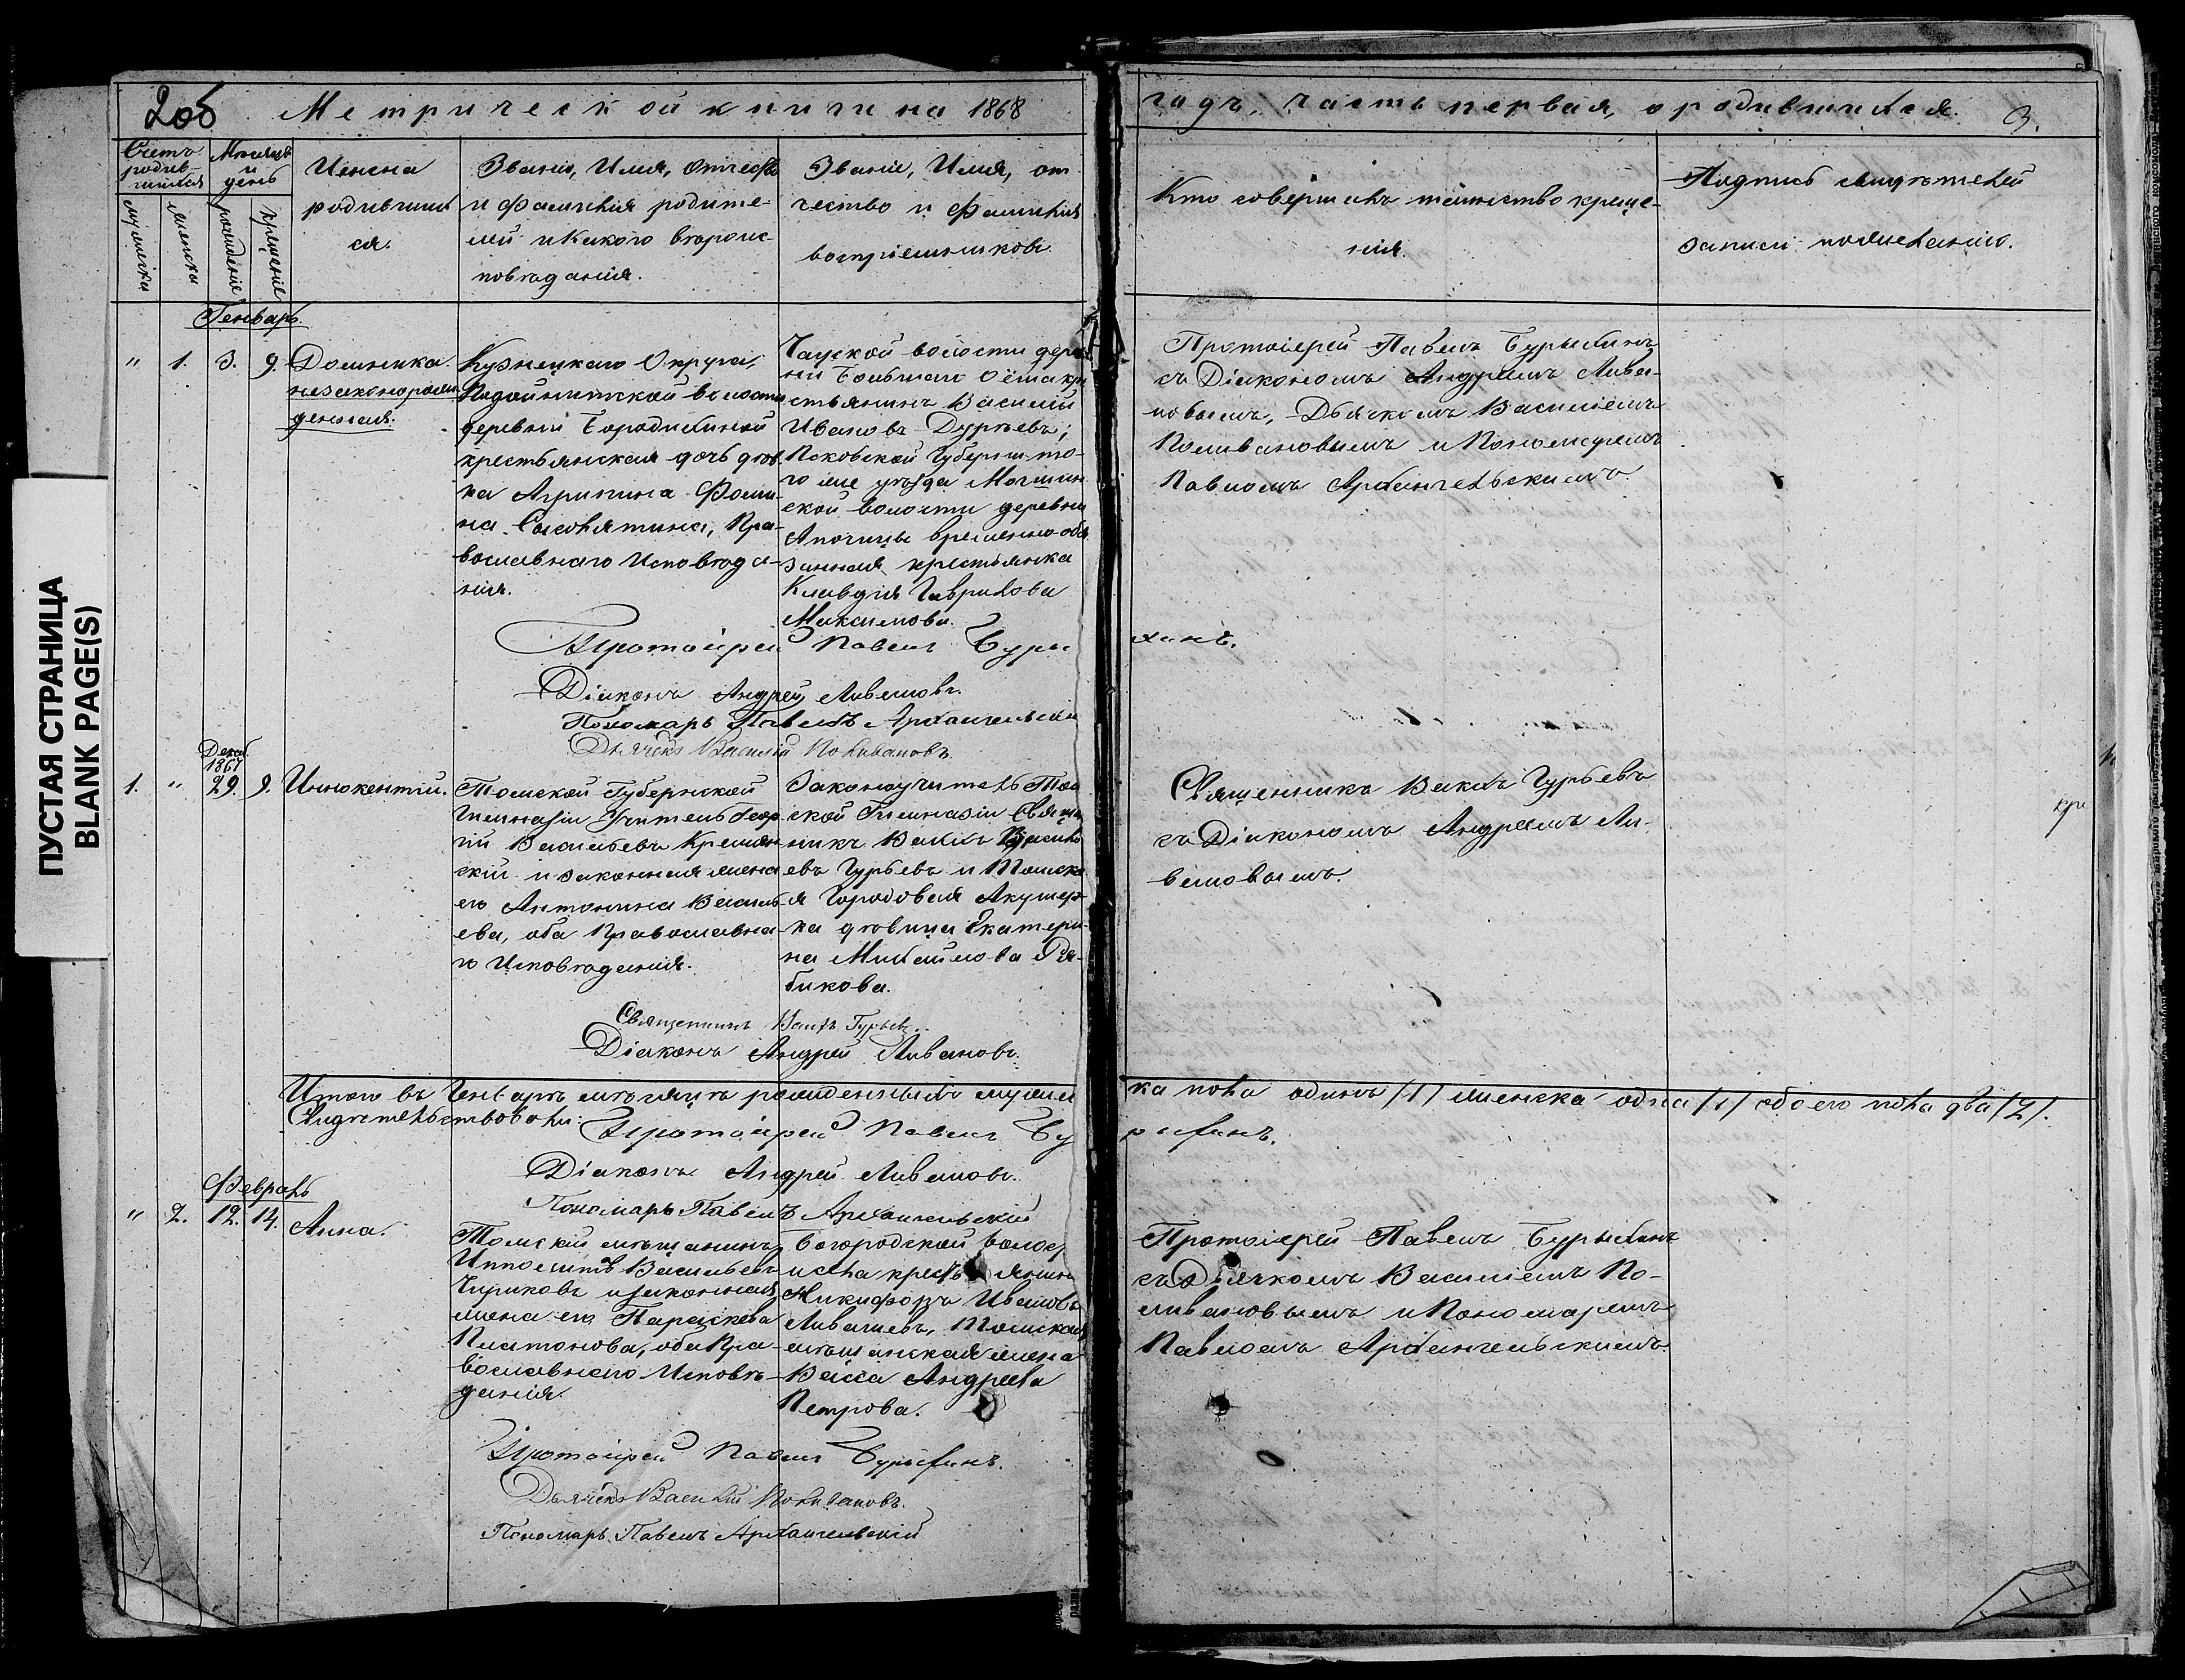 2об Метрической книги на 1868
годъ, часть первая, о родившихся. 3.
Счетъ родившихся
Мѣсяцъ и день
мужеска
женска
рожденіе
крещеніе
Имена
родивших
ся.
Званіе, Имя, Отчество
и Фамилія родите-
лей и какого вѣроис-
повѣданія.
Званіе, Имя, от
чество и Фамилія
воспріемниковъ
Кто совершалъ таинство креще-
нія.
Подпись свидѣтелей
записи по желанію.
Генварь.
" 1. 3. 9.
Домника.
незаконорож
денная.
Кузнецкаго Округа,
волости
деревни Бородининой
крестьянская дочь дѣв
ка Агрипина Фоми-
на Пра-
вославнаго Исповѣда-
нія.
Чауской волости дерев
ни Большаго Оёша кре
стьянинъ Василій
Ивановъ
Псковской Губерніи то-
го же уѣзда
ской волости деревни
временно-обя
занная крестьянка
Клавдія Гаврилова
Максимова.
Протоіерей Павелъ Бурыхинъ
съ Діакономъ Андреемъ Лива-
новымъ, Дьячкомъ Василіемъ
Поливановымъ и Пономаремъ
Павломъ Архангельскимъ.
Протоіерей Павелъ Буры
хинъ.
Діаконъ Андрей Ливановъ.
Пономарь Павелъ Архангельскій
Дьячекъ Василій Поливановъ
Декаб.
1867
1. " 29. 9.
Иннокентій.
Томской Губернской
Гимназіи Учитель Геор
гій Васильевъ
скій и законная жена
его Антонина Василь
ева, оба Православна-
го Исповѣданія.
Законоучитель Том
ской Гимназіи Священ
никъ Вакхъ
евъ Гурьевъ и Томска
я Городовая Акушер-
ка дѣвица Екатери-
на Михайлова Ря-
бикова.
Священникъ Вакхъ Гурьевъ
съ Діакономъ Андреемъ Ли-
вановымъ.
Священникъ Вакхъ Гурьевъ.
Діаконъ Андрей Ливановъ.
Итого въ Генварѣ мѣсяцѣ рожденныхъ мужес
ка пола одинъ /1/ женска одна /1/ обоего пола два /2/.
Свидѣтельствовали:
Протоіерей Павелъ Бу
рыхинъ.
Діаконъ Андрей Ливановъ.
Пономарь Павелъ Архангельскій
Февраль
" 2. 12. 14.
Анна.
Томскій мѣщанинъ
Ипполитъ Васильевъ
Чириковъ и законная
жена его Параскева
Платонова, оба Пра-
вославнаго Исповѣ-
данія.
Богородской волос
села крестьянинъ
Никифоръ Ивановъ
Томская
мѣщанская жена
Васса Андреева
Петрова.
Протоіерей Павелъ Бурыхинъ
съ Дьячкомъ Василіемъ По-
ливановымъ и Пономаремъ
Павломъ Архангельскимъ
Протоіерей Павелъ Бурыхинъ.
Дьячекъ Василій Поливановъ.
Пономарь Павелъ Архангельскій
ПУСТАЯ СТРАНИЦА
BLANK PAGE(S)